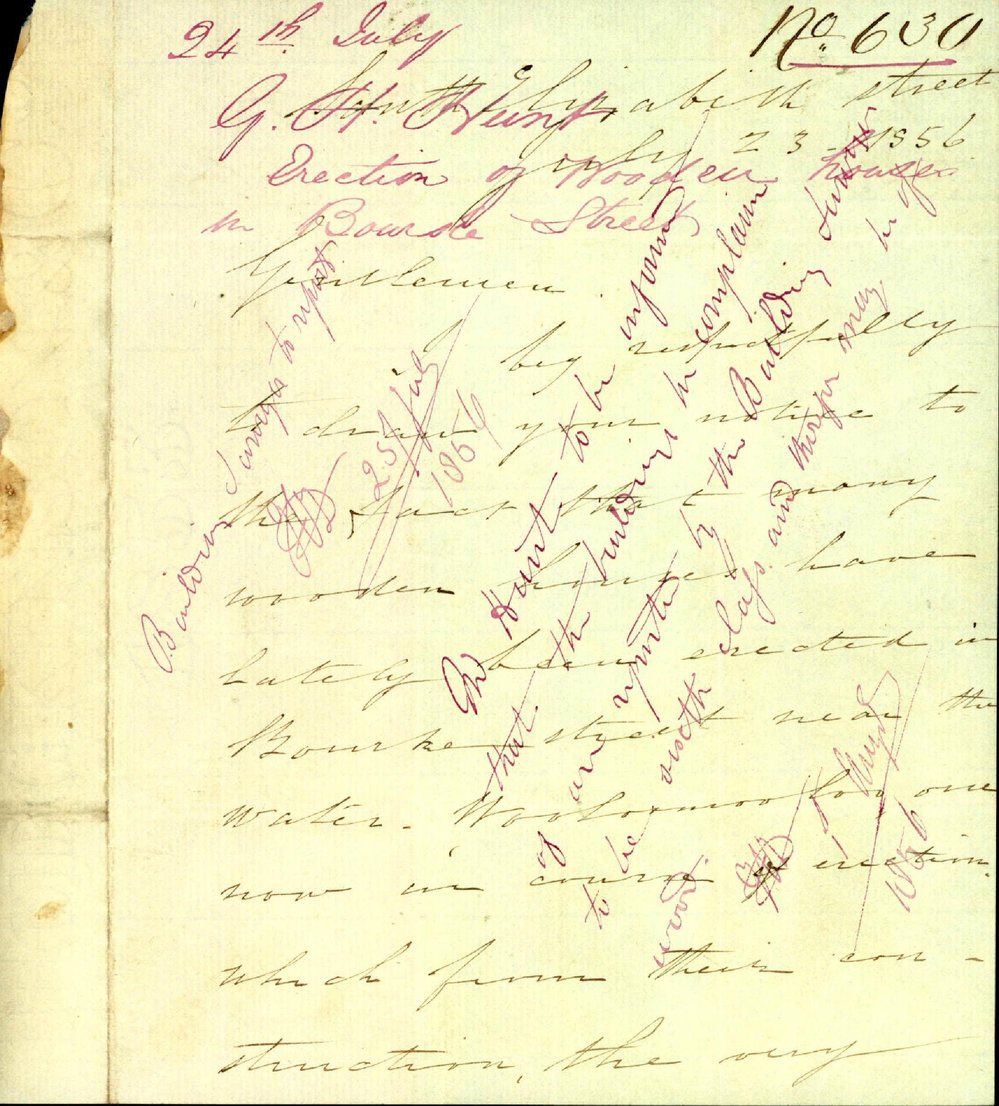 24th July
No. 630
South Elizabeth street
July 23 - 1856
G. H. Hunt,
Erection of Wooden houses
in Bourke Street
Gentlemen.
I beg respectfully
to draw your notice to
the fact that many
wooden houses have
lately been erected in
Bourke street near the
water - Woolloomooloo one
now in course of erection.
which from their con -
struction, the very
Building Surveyor to report
25 July
1856
Hunt to be informed
that the buildings he complains
of are reported by the Building Surveyor
to be sixth class and therefore may be of
wood.
1856